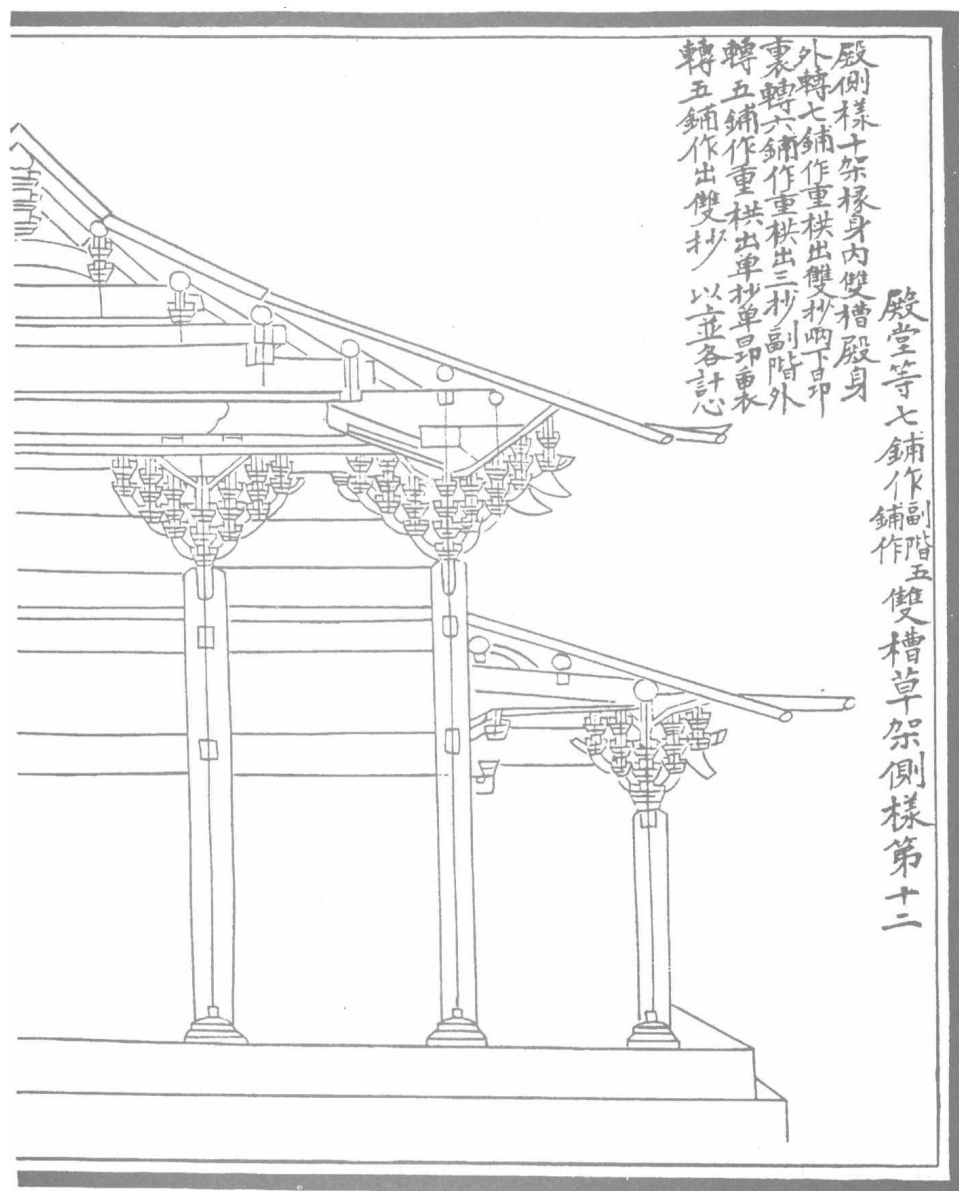 殿堂等七鋪作副階五鋪作雙槽草架側樣第十二
殿側樣十架椽身內雙槽殿身
外轉七鋪作重栱出雙抄兩下昂
裏轉六鋪作重栱出三抄副階外
轉五鋪作重栱出单抄单昂裏
轉五鋪作出雙抄 以上並各計心